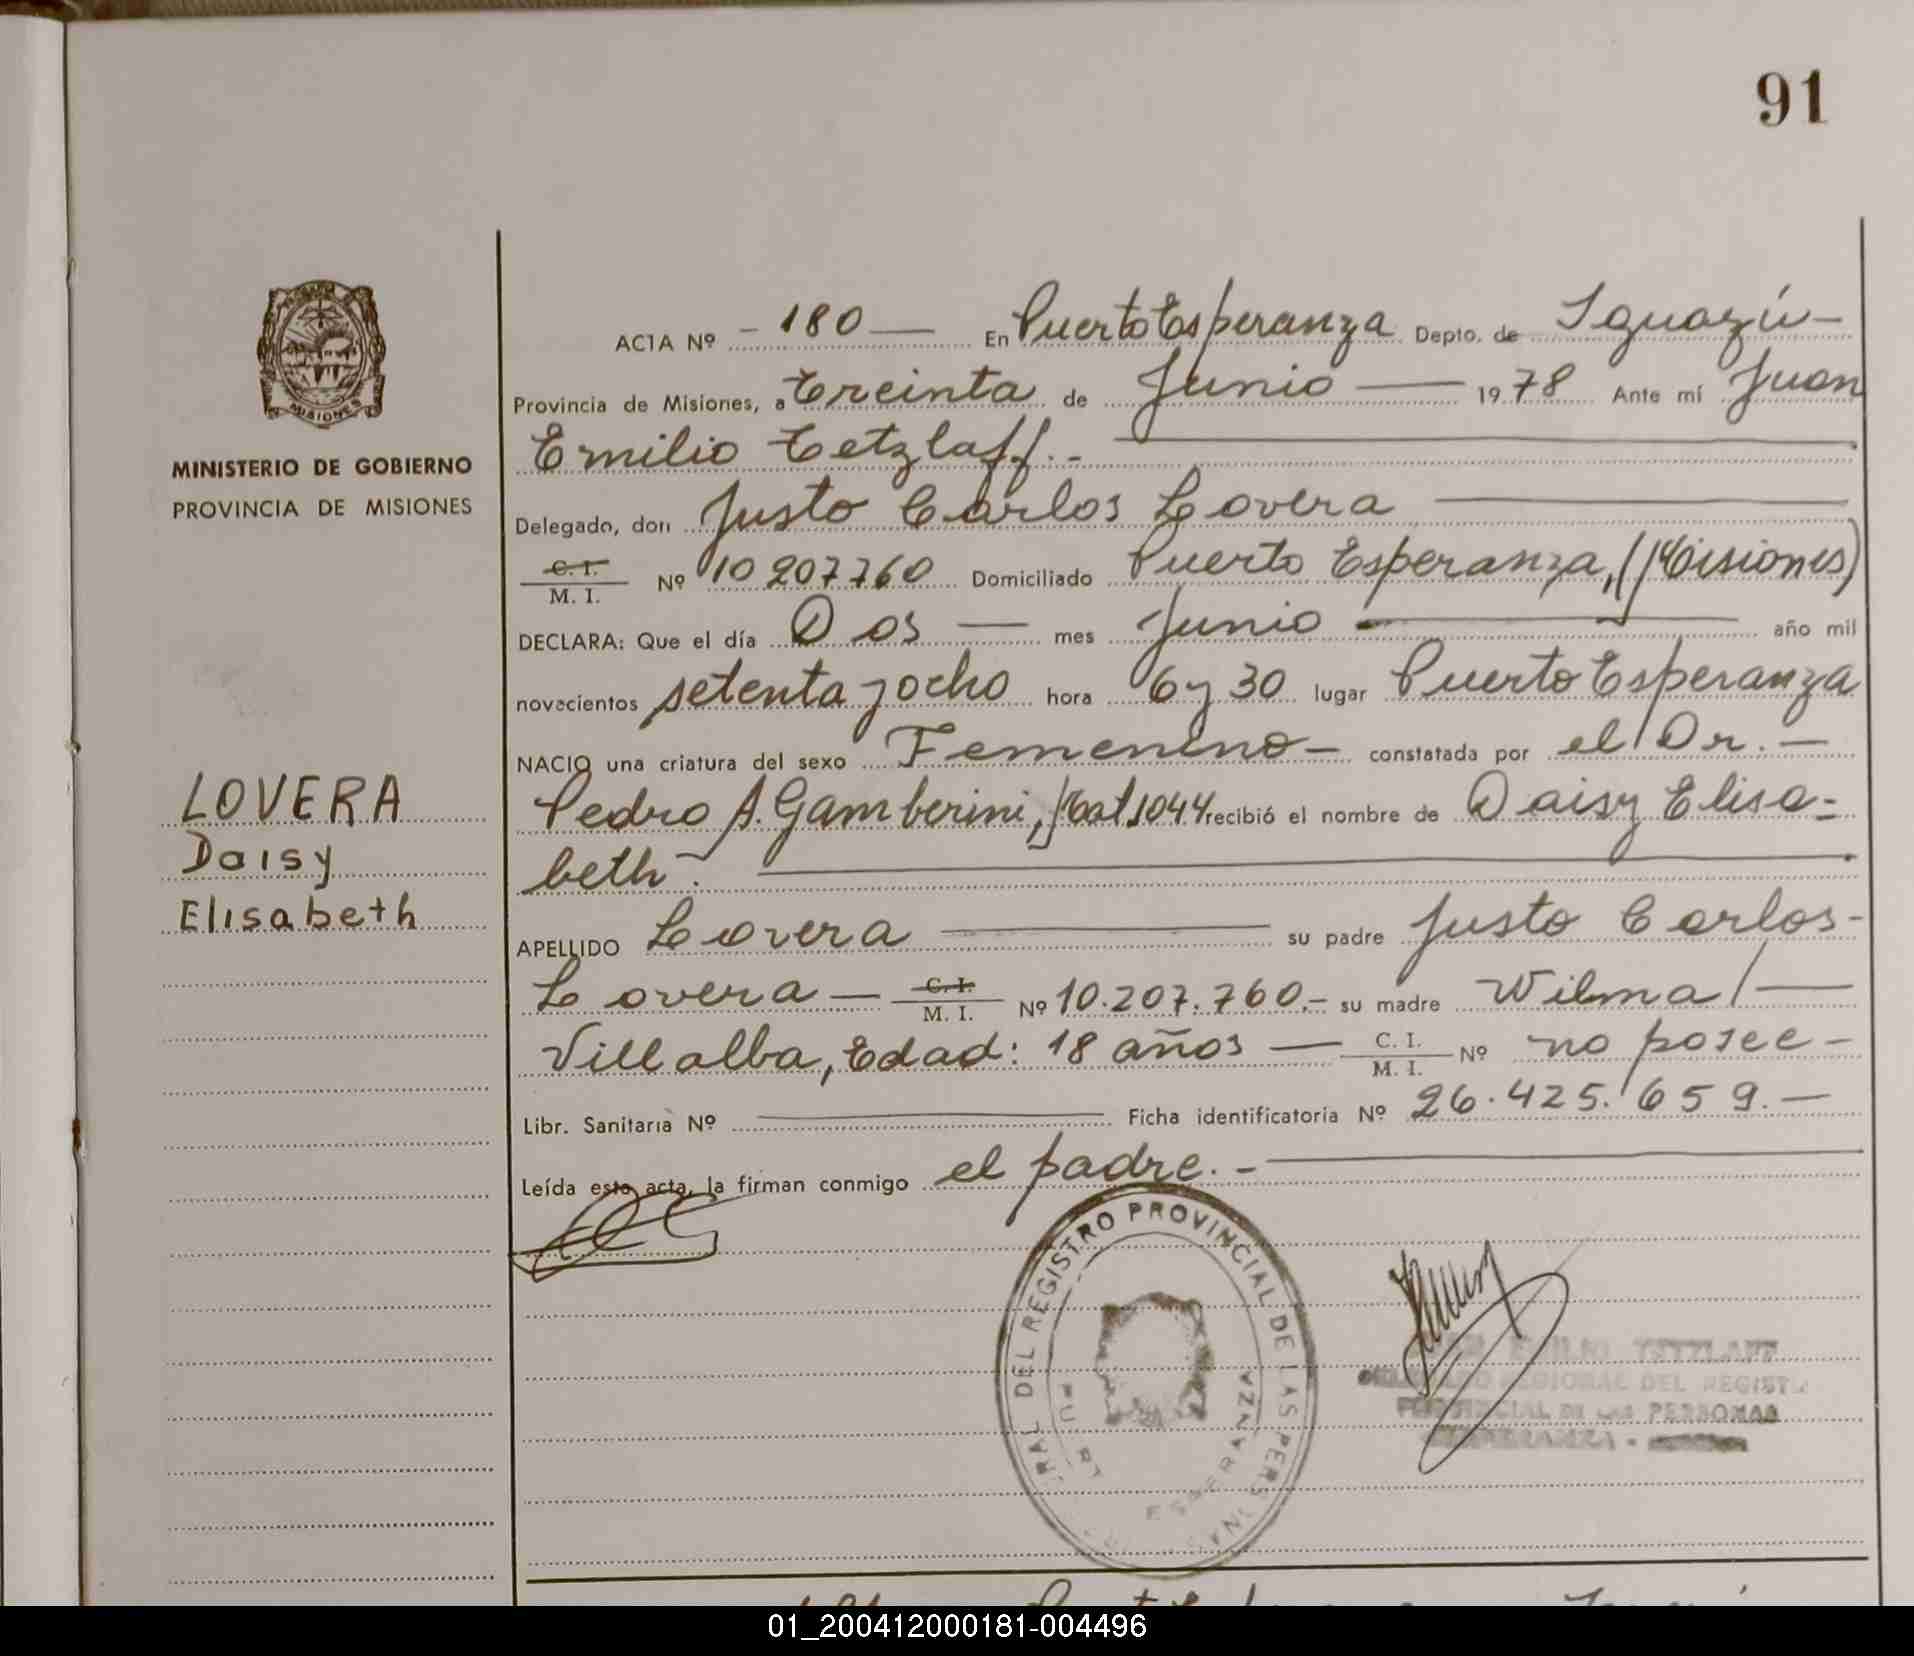 91
MISIONES
MINISTERIO DE GOBIERNO
PROVINCIA DE MISIONES
LOVERA
Daisy
Elisabeth
ACTA Nº - 180 — En Puerto Esperanza Depto. de Iguazú -
Provincia de Misiones, a treinta de Junio — 1978 Ante mí Juan
Emilio Tetzlaff. -
Delegado, don Justo Carlos Lovera —
C. I. / M. I. Nº 10207760 Domiciliado Puerto Esperanza, (Misiones)
DECLARA: Que el día Dos — mes Junio — año mil
novecientos setenta y ocho hora 6 y 30 lugar Puerto Esperanza
NACIO una criatura del sexo Femenino - constatada por el Dr. -
Pedro A. Gamberini, Mat. 1044 recibió el nombre de Daisy Elisa-
beth. —
APELLIDO Lovera — su padre Justo Carlos -
Lovera — C. I. / M. I. Nº 10.207.760.- su madre Wilma —
Villalba, Edad: 18 años — C. I. / M. I. Nº no posee -
Libr. Sanitaria Nº — Ficha identificatoria Nº 26.425.659. -
Leída esta acta, la firman conmigo el padre. - —
DEL REGISTRO PROVINCIAL DE LAS PERSONAS
ESPERANZA
EMILIO TETZLAFF
DELEGADO REGIONAL DEL REGISTRO
PROVINCIAL DE LAS PERSONAS
ESPERANZA -
01_200412000181-004496